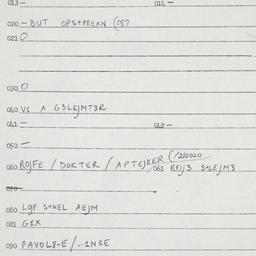 013 — 014 —
020 – BUT OPS+PEEXN (08?
021 O
030 O
040 V1 A G3LEJMT3R
041 — 042 —
050 —
060 ROJFE / DOKTER / APTEJKER (/212020
061 REJJ3 S+LEJM3
070
080 LQF S+NEL AEJM
081 G1X
090 PAVOL8-E /..1NKE